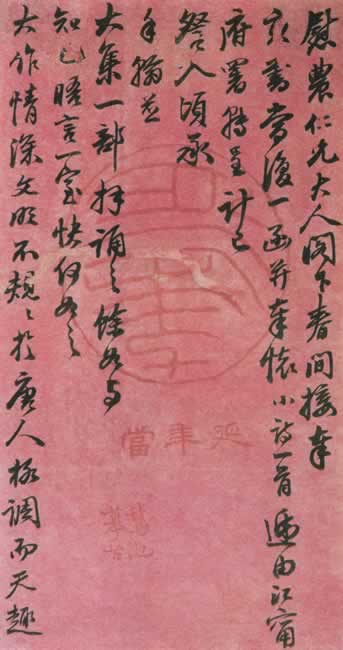 慰農仁兄大人閣下春間接奉
書當復一函并奉懷小詩一首遞由江甯
府署轉呈計已
詧入頃承
手翰並
大集一部拜誦之餘如與
知己晤言一室快何如之
大作情深文明不規〻於唐人格調而天趣
延年當